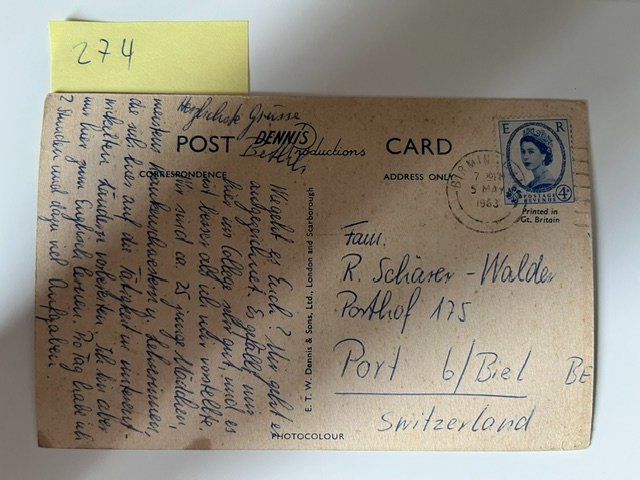 274
POST CARD
DENNIS
Productions
CORRESPONDENCE
ADDRESS ONLY
Wie geht es Euch? Mir geht es
ausgezeichnet. Es gefällt mir
hier im College sehr gut, und es
ist besser als ich mir vorstellte.
Wir sind ca. 25 junge Mädchen,
meistens Krankenschwestern u. Lehrerinnen,
die sich hier auf die Tätigkeit in unterent-
wickelten Ländern vorbereiten. Ich bin aber
nur hier zum Englisch lernen. Pro Tag habe ich
2 Stunden und dazu noch Aufgaben.
Herzlichste Grüsse
Bethli
E. T. W. Dennis & Sons, Ltd., London and Scarborough
PHOTOCOLOUR
E R
POSTAGE
REVENUE
4D
BIRMIN
5 MAY
1963
Printed in
Gt. Britain
Fam.
R. Schärer-Walder
Porthof 175
Port b/Biel BE
Switzerland